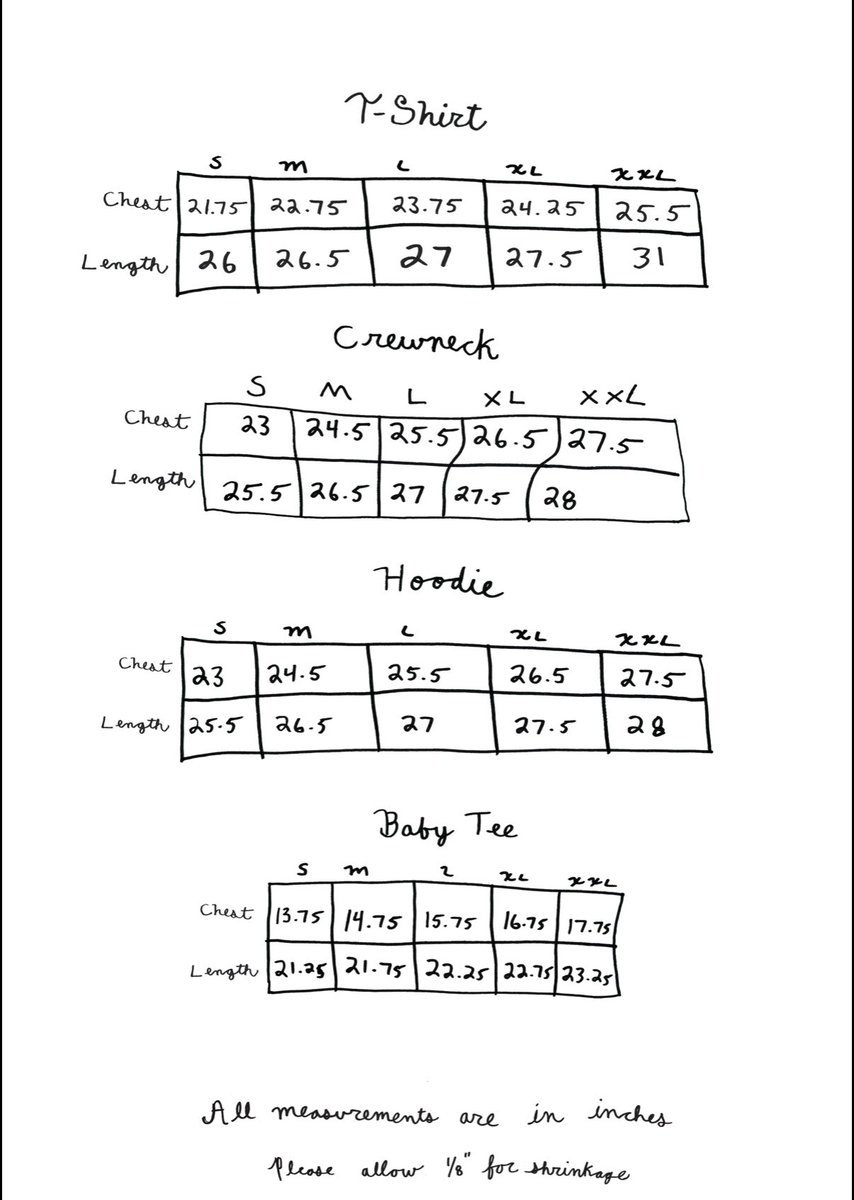 T-Shirt
S M L XL XXL
Chest 21.75 22.75 23.75 24.25 25.5
Length 26 26.5 27 27.5 31
Crewneck
S M L XL XXL
Chest 23 24.5 25.5 26.5 27.5
Length 25.5 26.5 27 27.5 28
Hoodie
S M L XL XXL
Chest 23 24.5 25.5 26.5 27.5
Length 25.5 26.5 27 27.5 28
Baby Tee
S M L XL XXL
Chest 13.75 14.75 15.75 16.75 17.75
Length 21.25 21.75 22.25 22.75 23.25
All measurements are in inches
Please allow 1/8" for shrinkage